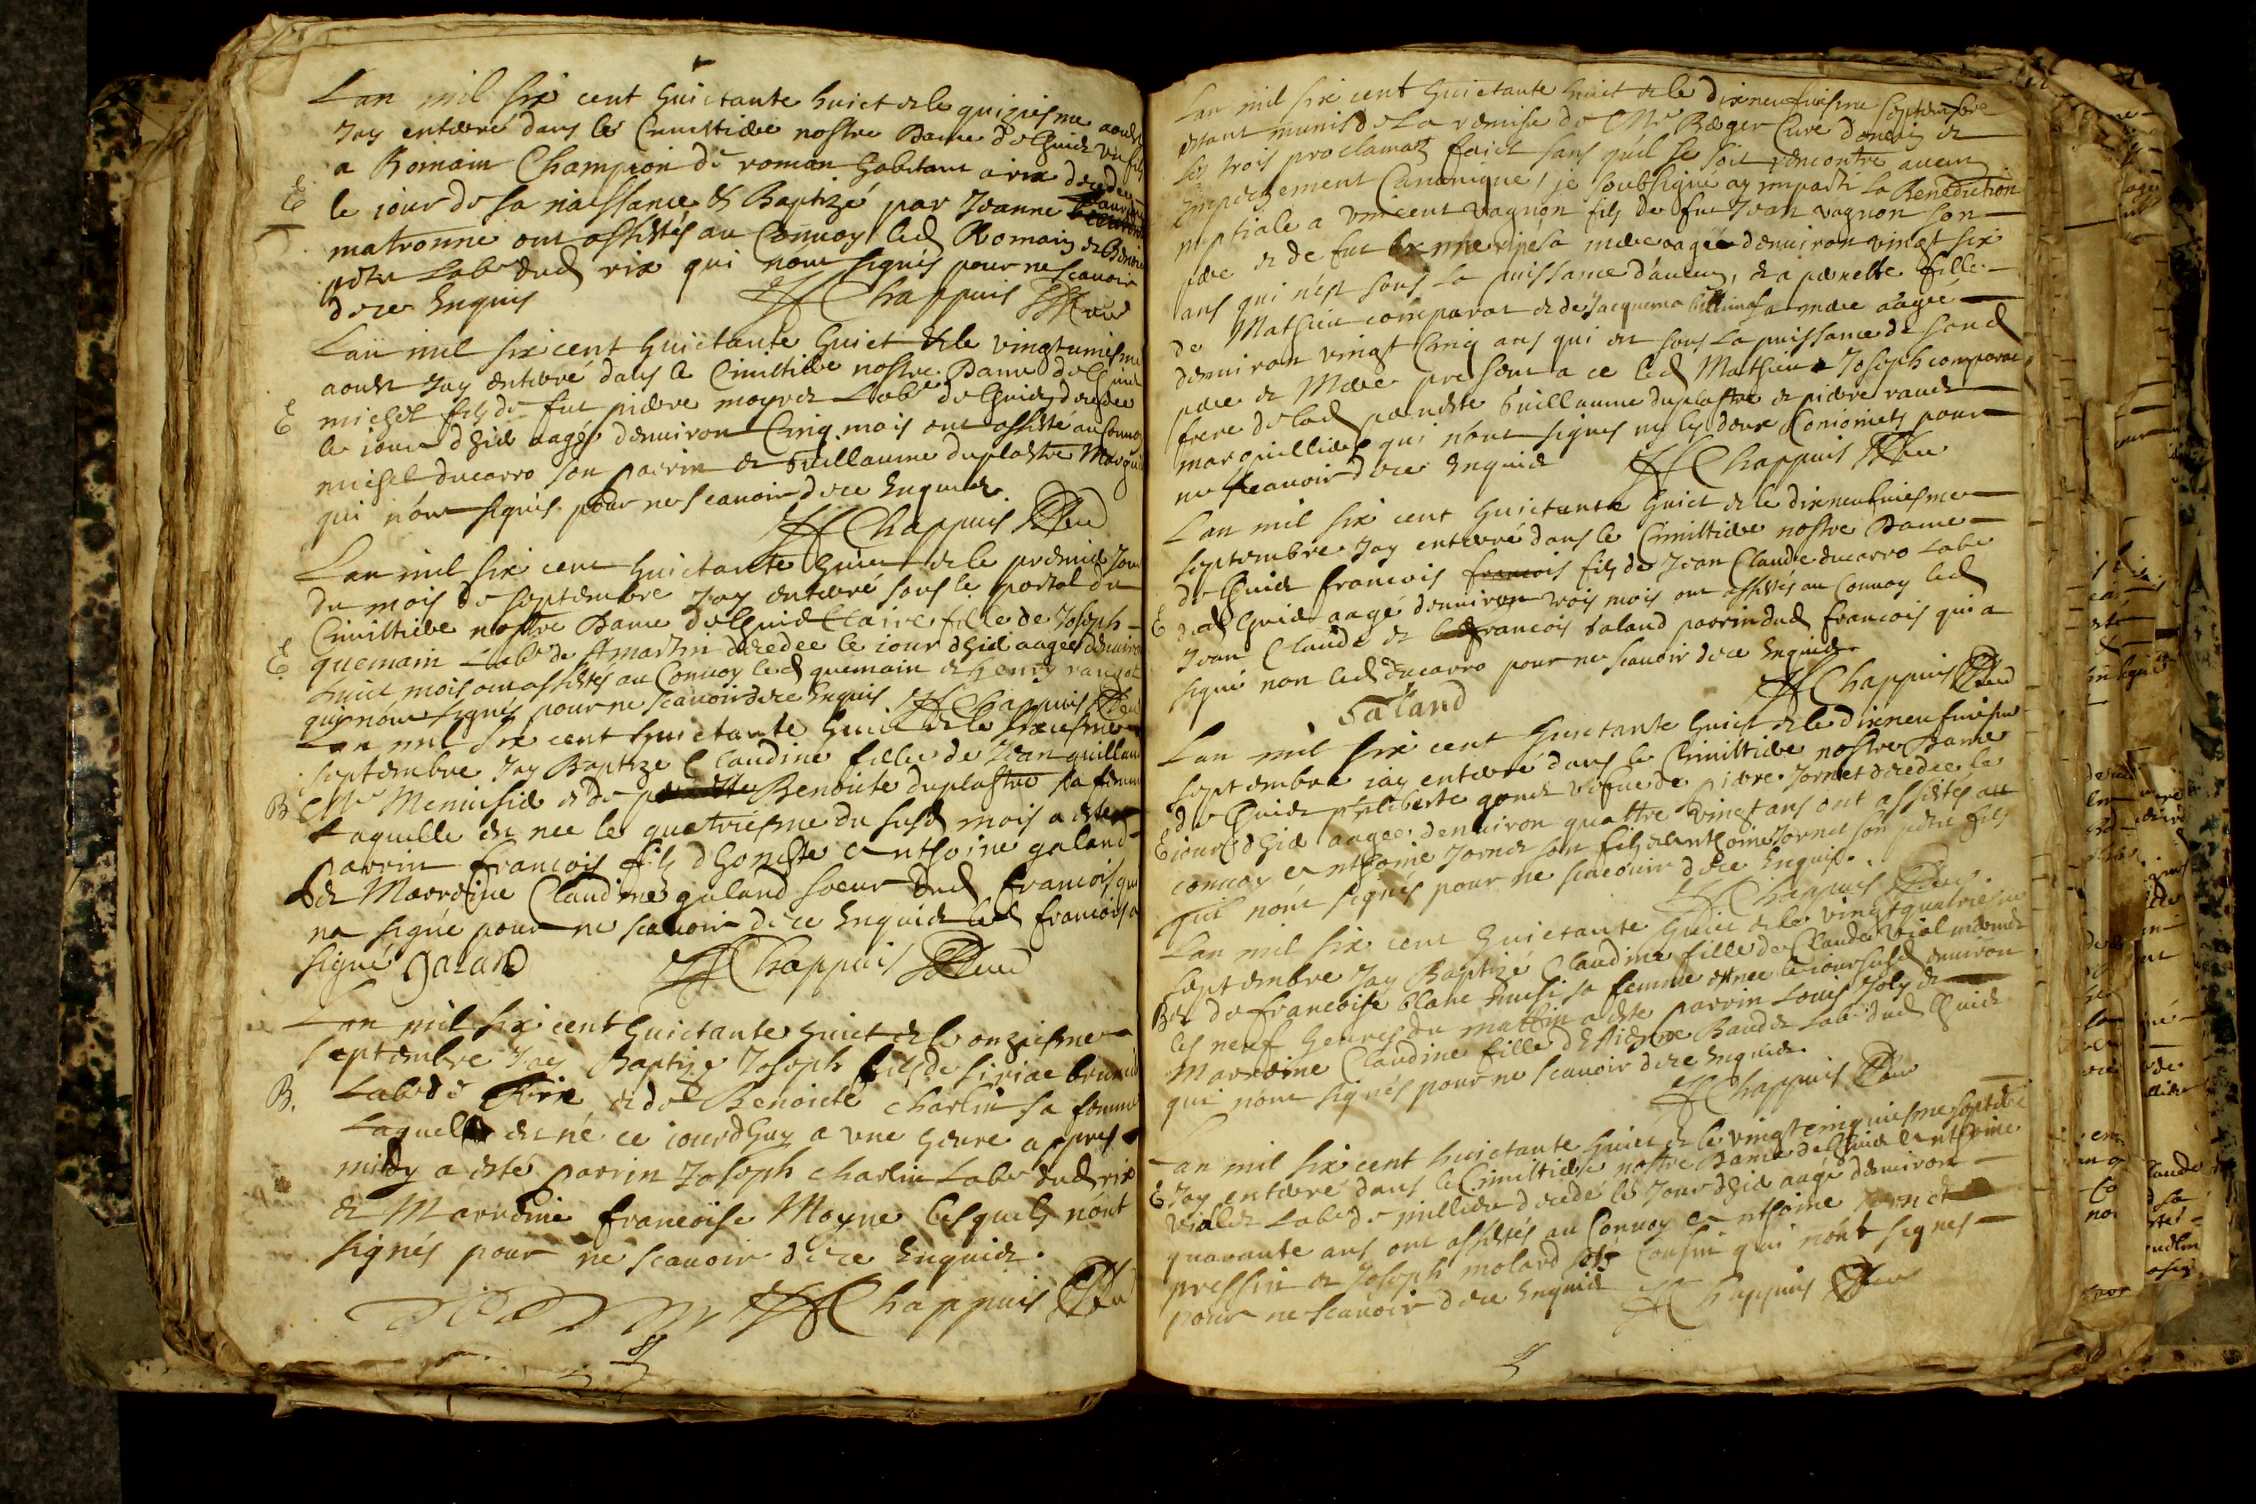 Lan mil six cent huictante huict & le quiziesme aoust
Jay enterré dans le Cimiltiere nostre Dame de Lhuict un fils
a Romain Champion de roman habitant a rix decedee
E
le iour de sa naissance & Baptizé par Jeanne
matronne ont assistés au Convoy led Romain & Benoit
Labr dud rix qui nont signés pour ne scavoir
de ce Enquis HChappuis Curé
Lan mil six cent huictante huict & le vingtuniesme
aoust Jay enterré dans le Cimiltiere nostre Dame de Lhuict
E michel fils de fut pierre moyret Labr de Lhuict decedee
le iour dhier aagée denviron Cinq mois ont assisté au Convoy
michel ducarro son parrin & Guillaume duplastre Marguil
qui nont signés pour ne scavoir de ce Enquis
HChappuis Curé
Lan mil six cent huictante huict & le premier Jour
du mois de septembre Jay enterré sous le portal du
Cimiltiere nostre Dame de Lhuict Claire fille de Joseph
E quemain Labr de St martin decedee le iour dhier aagee denviron
huict mois ont assistés au Convoy led quemain & henry
qui nont signés pour ne scavoir de ce Enquis HChappuis Curé
Lan mil six cent huictante huict & le sixiesme
septembre Jay Baptize Claudine fille de Jean guillau
B Mre Menuisier & de Benoiste duplastre sa femme
Laquelle est nee le quatriesme du susd mois a esté
parrin francois fils dhoneste Anthoine galand
& Marrine Claudine galand soeur dud francois qui
na signé pour ne scavoir de ce Enquise led francois a
signé Galand HChappuis Curé
Lan mil six cent huictante huict & le onziesme
septembre Jay Baptize Joseph fils de
B. Labr de Rix & de Benoiste charlin sa femme
Lequel est né ce iourdhuy a une heure appres
midy a esté parrin Joseph charlin Labr dud rix
& Marrine francoise Moyne lesquels nont
signés pour ne scavoir de ce Enquis.
HChappuis Curé
Lan mil six cent huictante huict & le dixneufuiesme septembre
estant munis de La remise de Mre Roger Curé &
les trois proclamaōns faict sans quil se soit rencontré aucun
Empechement Canonique, je soubsigné ay imparti La Benediction
nuptiale a vincent vagnon fils de fut Jean vagnon son
pere & de fut sa mere aagée denviron vingt six
ans qui nest sous La puissance daucun, & a pernette fille
de Mathieu comparat & de Jacquema sa mere aagée
denviron vingt Cinq ans qui est sous La puissance de son d
pere & Mere present a ce led Mathieu & Joseph comparat
frere de lad pernette Guillaume duplastre & pierre
marguillier qui nont signés ny les deux Conioincts pour
ne scavoir de ce Enquis HChappuis Curé
Lan mil six cent huictante huict & le dixneufuiesme
septembre Jay enterré dans le Cimiltiere nostre Dame
de Lhuict francois francois fils de Jean Claude ducarro Labr
E dud Lhuict aagé denviron trois mois ont assistés au Convoy led
Jean Claude & francois Galand parrin dud francois qui a
signé non led ducarro pour ne scavoir de ce Enquis
Galand HChappuis Curé
Lan mil six cent huictante huict & le dixneufuiesme
septembre iay enterré dans le Cimiltiere nostre Dame
de Lhuict philiberte vefve de pierre Jornet decedee le
E iour dhier aagee denviron quattre vingt ans ont assistés au
convoy Anthoine Jornet son fils & Anthoine Jornet son petit fils
quil nont signés pour ne scavoir de ce Enquis.
HChappuis Curé
Lan mil six cent huictante huict & le vingtquatriesme
septembre Jay Baptizé Claudine fille de Claude
B & de francoise blanc sa femme est nee le iour susd environ
les neuf heures du mattin a esté parrin Louis Joly &
Marreine Claudine fille dEstienne Baudet Labr dud Lhuict
qui nont signés pour ne scavoir de ce Enquis.
HChappuis Curé
Lan mil six cent huictante huict & le vingtcinquiesme septbre
E Jay enterré dans le Cimiltiere nostre Dame de Lhuict Anthoine
Violet Labr de millieu decedé le Jour dhier aagé denviron
quarante ans ont assistés au Convoy Anthoine
pressin & Joseph molard son Cousin qui nont signés
pour ne scavoir de ce Enquis HChappuis Curé